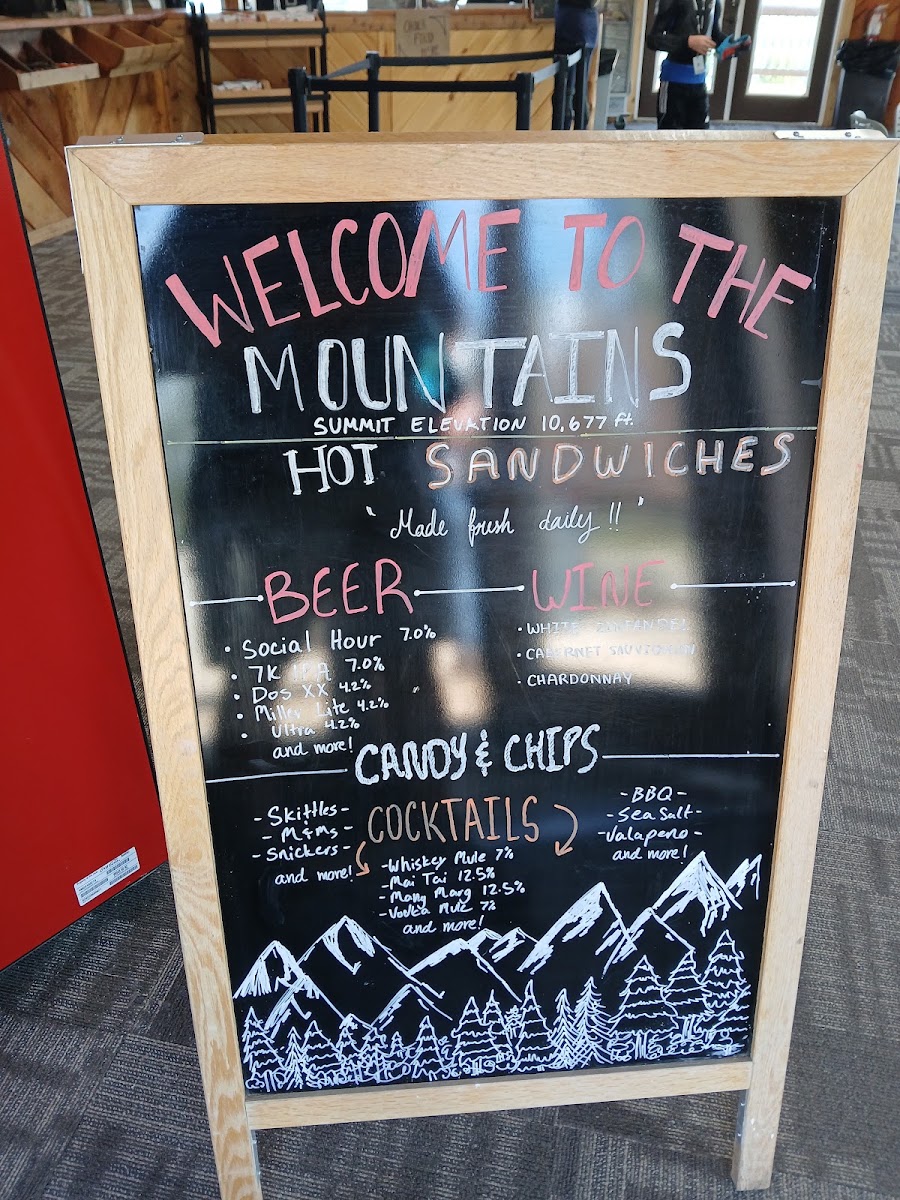 ORDER
FOOD
HERE
WELCOME TO THE
MOUNTAINS
SUMMIT ELEVATION 10,677 ft.
HOT SANDWICHES
"Made fresh daily!!"
BEER
• Social Hour 7.0%
• 7K IPA 7.0%
• Dos XX 4.2%
• Miller Lite 4.2%
• Ultra 4.2%
and more!
WINE
• WHITE ZINFANDEL
• CABERNET SAUVIGNON
- CHARDONNAY
CANDY & CHIPS
-Skittles-
- M&Ms -
-Snickers-
and more!
COCKTAILS
-Whiskey Mule 7%
-Mai Tai 12.5%
-Mang Marg 12.5%
-Vodka Mule 7%
and more!
-BBQ-
-Sea Salt-
-Jalapeno-
and more!